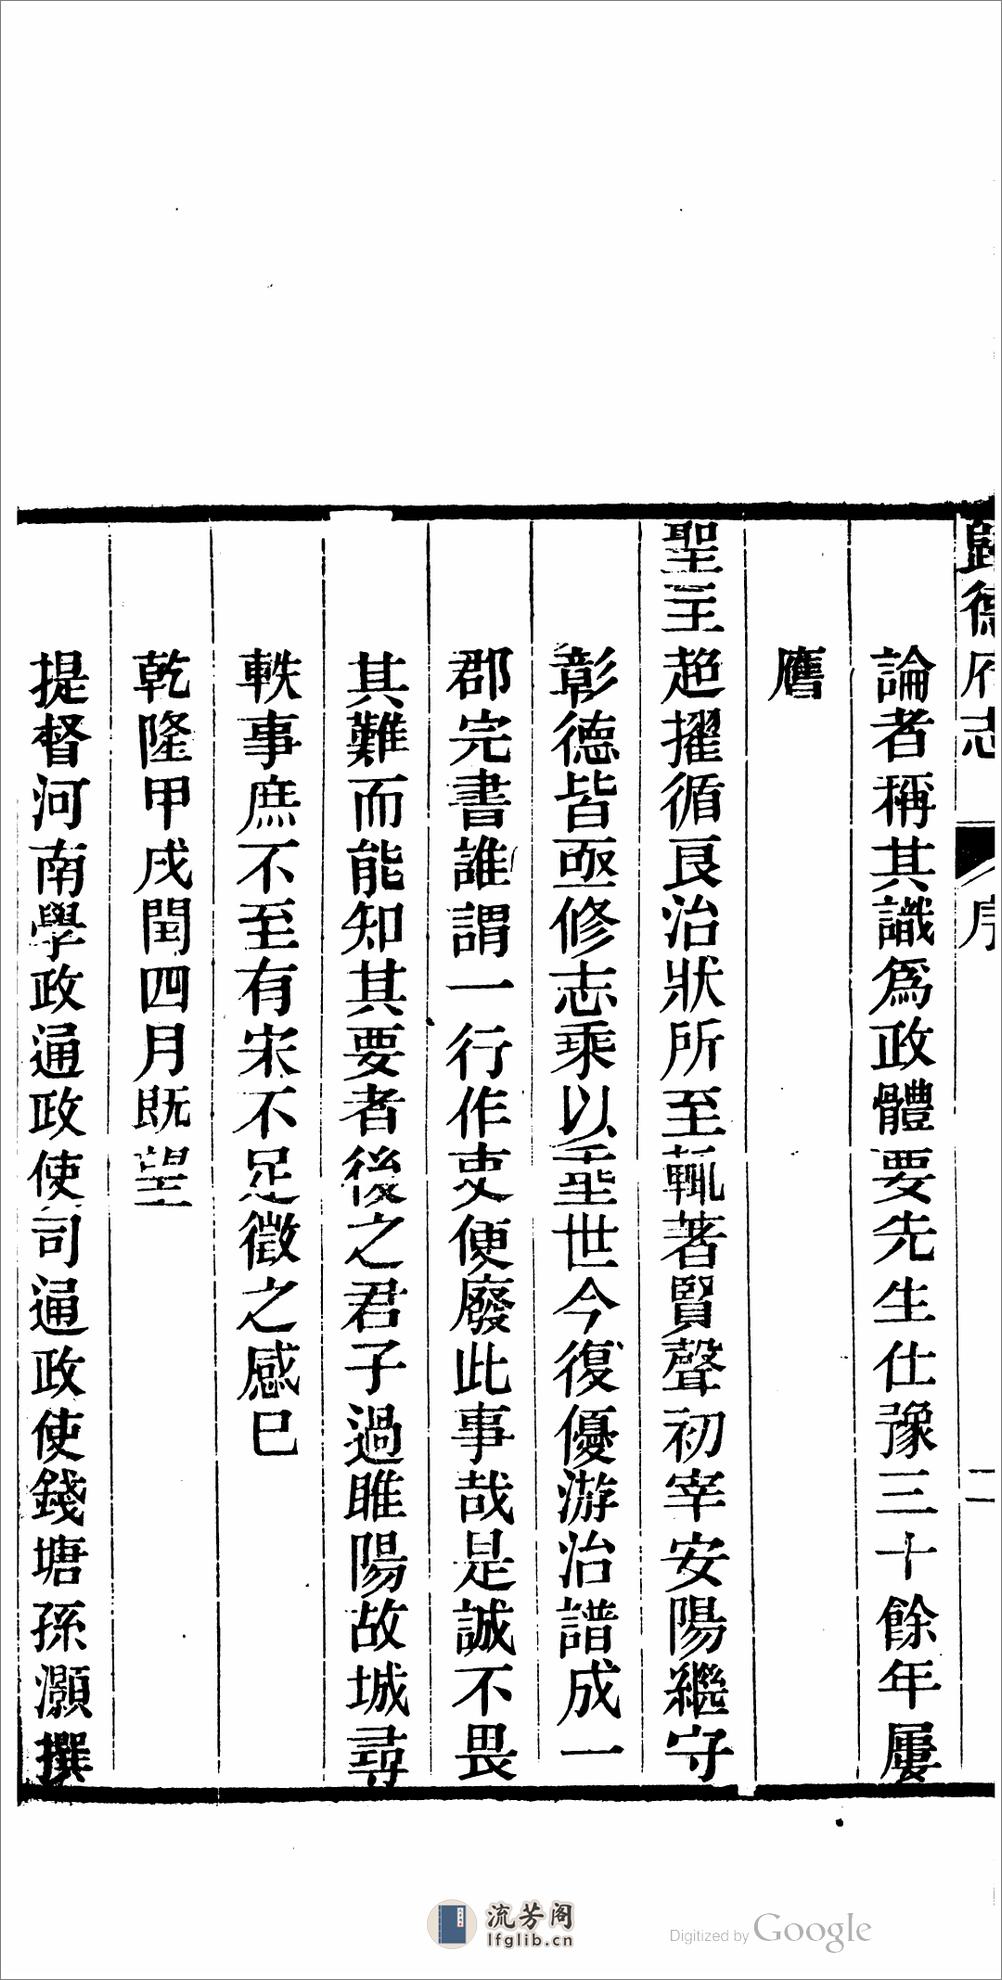 歸德府志
序
二
論者稱其識為政體要先生仕豫三十餘年屢
膺
聖主超擢循良治狀所至輒著賢聲初宰安陽繼守
彰德皆亟修志乘以埀世今復優游治譜成一
郡完書誰謂一行作吏便廢此事哉是誠不畏
其難而能知其要者後之君子過睢陽故城尋
軼事庶不至有宋不足徵之感巳
乾隆甲戌閏四月既望
提督河南學政通政使司通政使錢塘孫灝撰
流芳阁
lfglib.cn
Digitized by Google